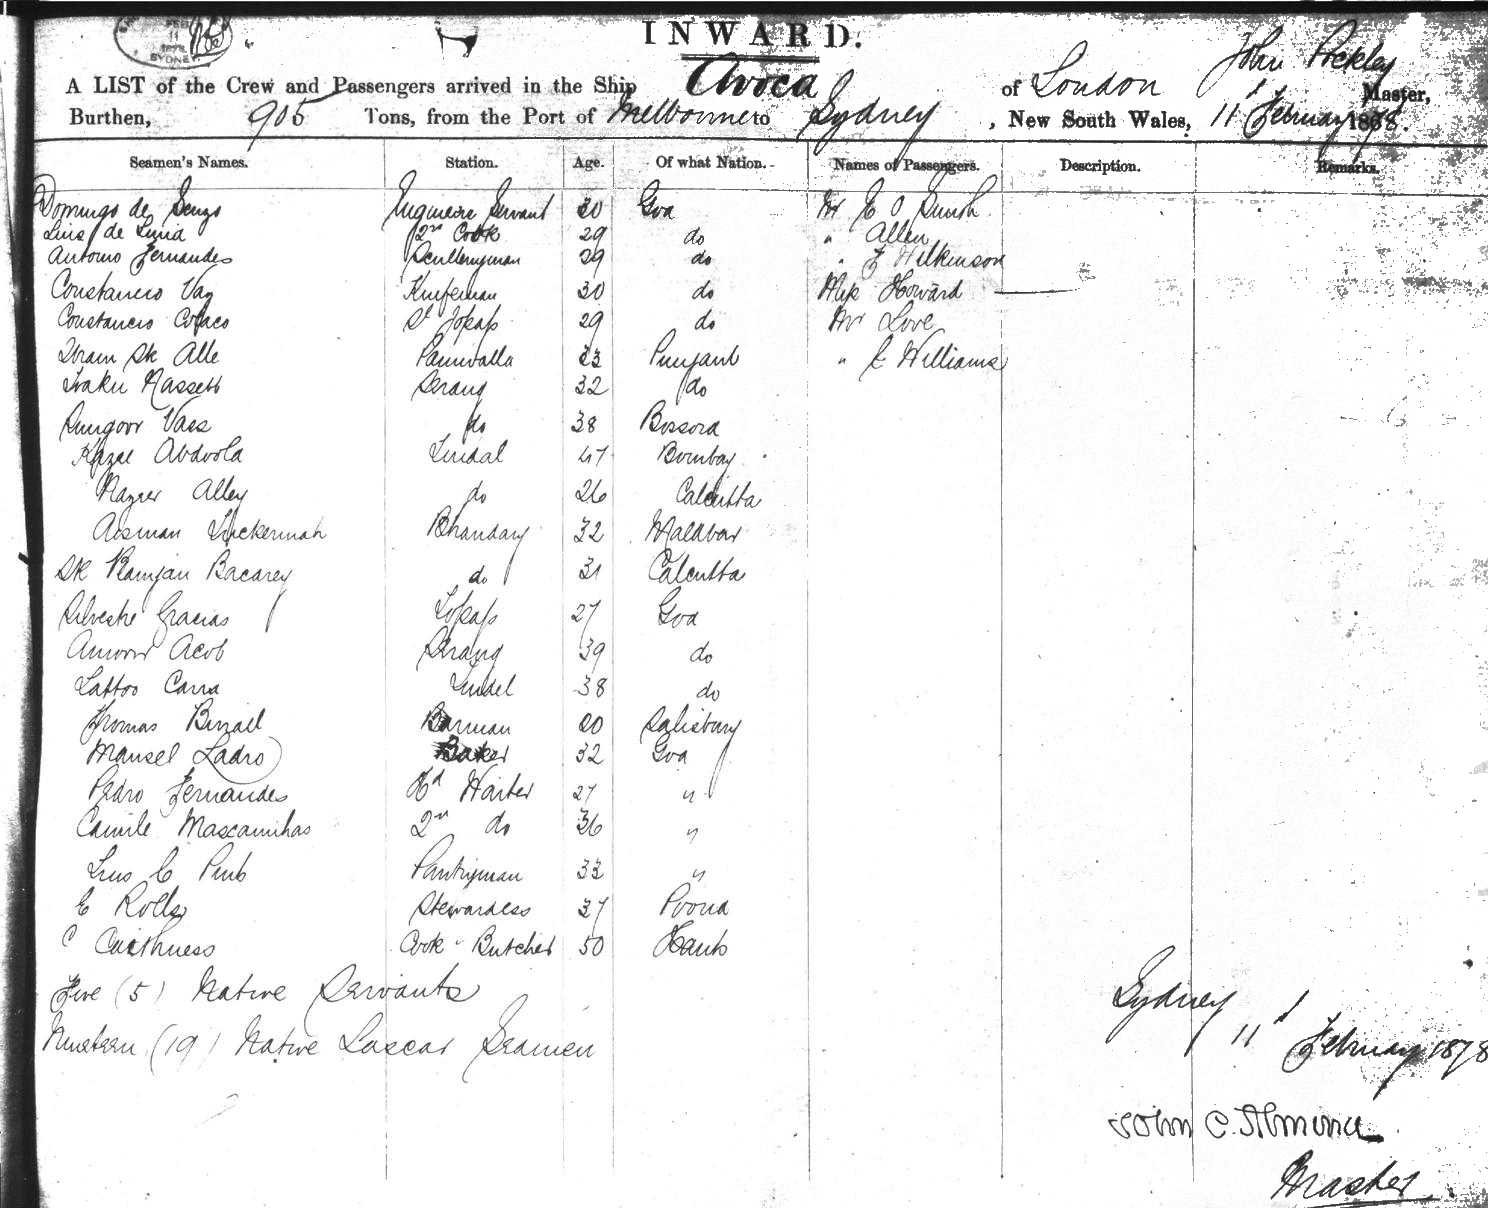 FEB 11 1878 SYDNEY
INWARD.
A LIST of the Crew and Passengers arrived in the Ship Avoca of London John Pockley Master,
Burthen, 905 Tons, from the Port of Melbourne to Sydney, New South Wales, 11 February 1878.
Seamen's Names. Station. Age. Of what Nation. Names of Passengers. Description. Remarks.
Domingo de Servant 20 Goa Mr E O Smith
Luis de 2nd Cook 29 do " Allen
Antonio Fernandes Sculleryman 29 do " Wilkinson
Constancio Vaz Knifeman 30 do Miss Howard
Constancio Colaco Topass 29 do Mr Love
Sk Alle Panniwalla 23 Punjaub " Williams
Serang 32 do
Vass do 38 Bossora
Abdoola Tindal 47 Bombay
Alley do 26 Calcutta
Aosman Bhandary 32 Malabar
Sk Ramjan Bacarey do 31 Calcutta
Silvestre Gracias Topass 27 Goa
Acob Serang 39 do
Lattoo Carra Tindel 38 do
Thomas Barman 20 Salisbury
Mansel Ladro Baker 32 Goa
Pedro Fernandes Hd Waiter 27 "
Camile Mascarinhas 2nd do 36 "
C Pantryman 33 "
E Rolls Stewardess 37 Poona
C Caithness Cook & Butcher 50 Hants
Five (5) Native Servants
Nineteen (19) Native Lascar Seamen
Sydney
11 February 1878
John C.
Master